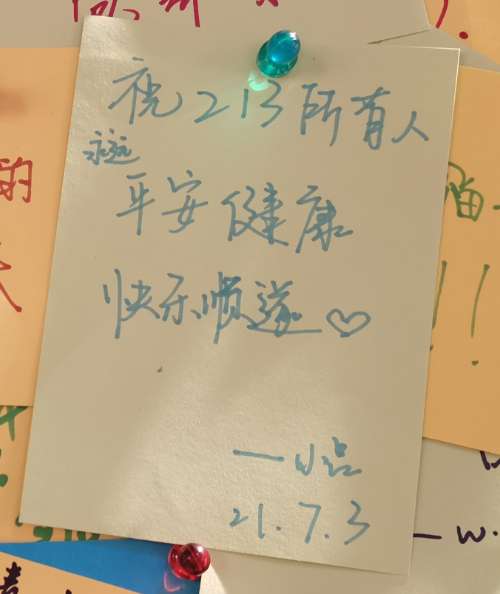 祝213所有人
永远
平安健康
快乐顺遂♡
21.7.3
的
!!
w.